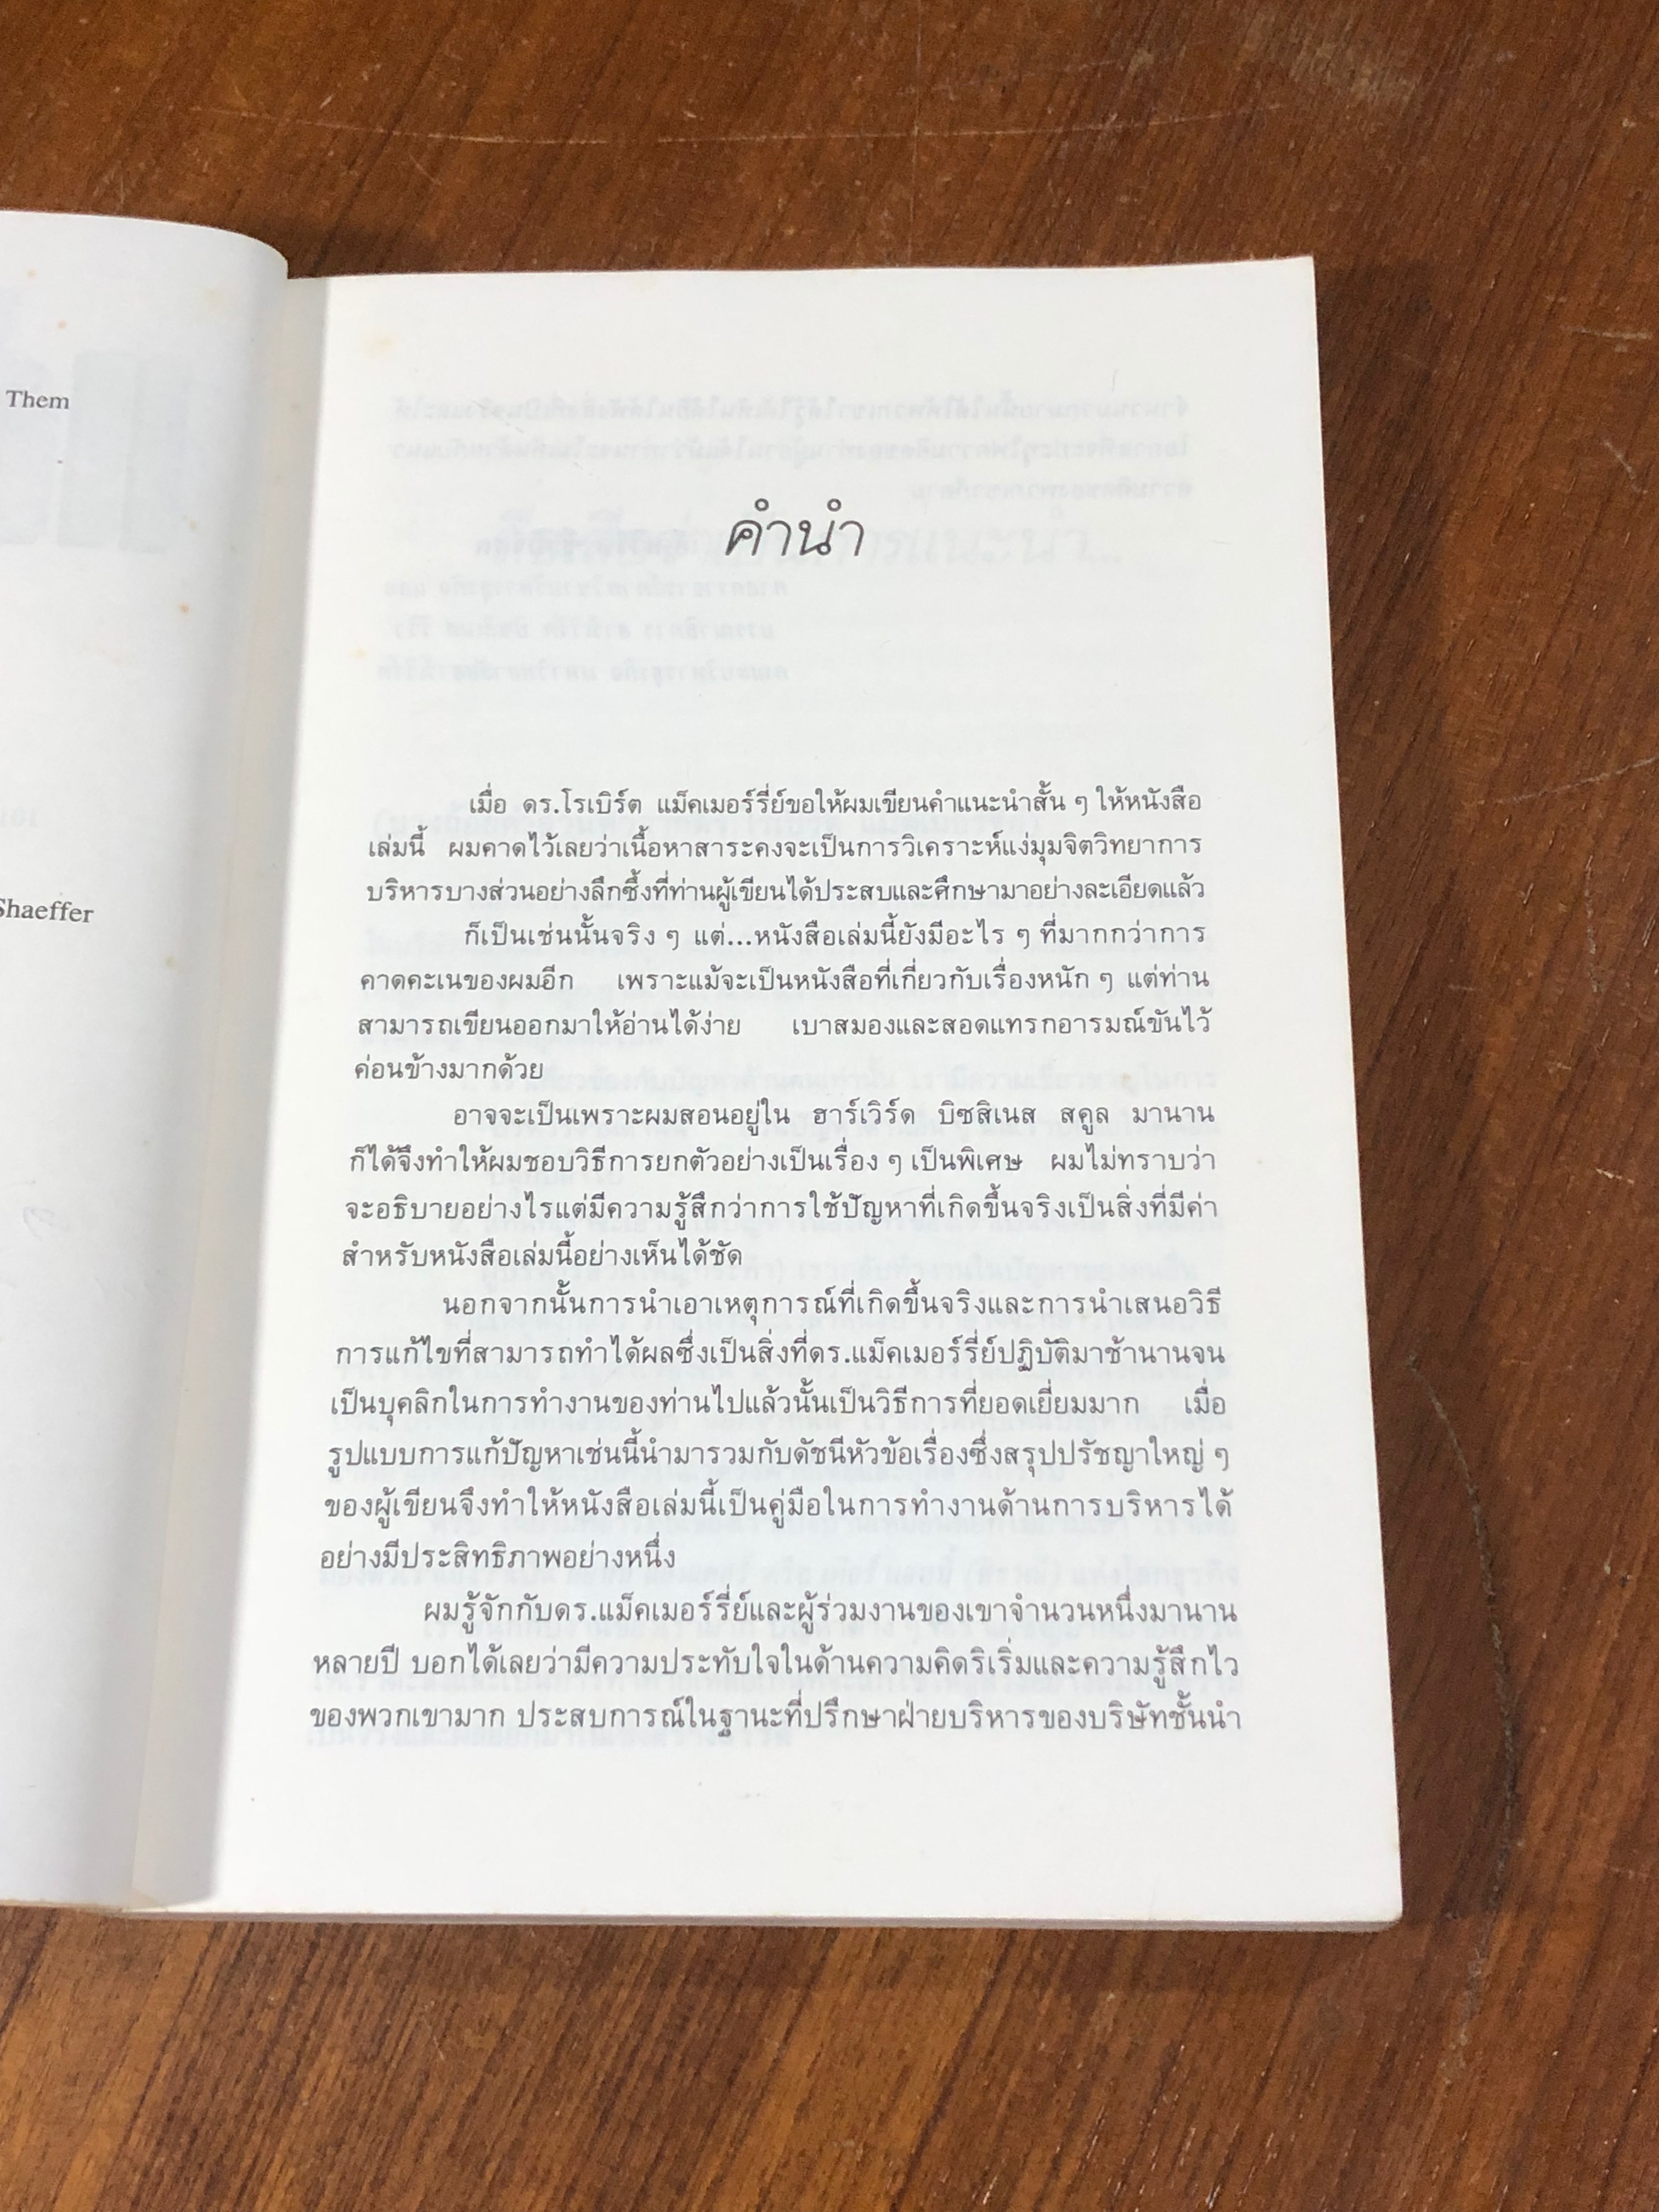 Them
Shaeffer
คำนำ
เมื่อ ดร.โรเบิร์ต แม็คเมอร์รี่ย์ขอให้ผมเขียนคำแนะนำสั้น ๆ ให้หนังสือ
เล่มนี้ ผมคาดไว้เลยว่าเนื้อหาสาระคงจะเป็นการวิเคราะห์แง่มุมจิตวิทยาการ
บริหารบางส่วนอย่างลึกซึ้งที่ท่านผู้เขียนได้ประสบและศึกษามาอย่างละเอียดแล้ว
ก็เป็นเช่นนั้นจริง ๆ แต่...หนังสือเล่มนี้ยังมีอะไร ๆ ที่มากกว่าการ
คาดคะเนของผมอีก เพราะแม้จะเป็นหนังสือที่เกี่ยวกับเรื่องหนัก ๆ แต่ท่าน
สามารถเขียนออกมาให้อ่านได้ง่าย เบาสมองและสอดแทรกอารมณ์ขันไว้
ค่อนข้างมากด้วย
อาจจะเป็นเพราะผมสอนอยู่ใน ฮาร์เวิร์ด บิซสิเนส สคูล มานาน
ก็ได้จึงทำให้ผมชอบวิธีการยกตัวอย่างเป็นเรื่อง ๆ เป็นพิเศษ ผมไม่ทราบว่า
จะอธิบายอย่างไรแต่มีความรู้สึกว่าการใช้ปัญหาที่เกิดขึ้นจริงเป็นสิ่งที่มีค่า
สำหรับหนังสือเล่มนี้อย่างเห็นได้ชัด
นอกจากนั้นการนำเอาเหตุการณ์ที่เกิดขึ้นจริงและการนำเสนอวิธี
การแก้ไขที่สามารถทำได้ผลซึ่งเป็นสิ่งที่ดร.แม็คเมอร์รี่ย์ปฏิบัติมาช้านานจน
เป็นบุคลิกในการทำงานของท่านไปแล้วนั้นเป็นวิธีการที่ยอดเยี่ยมมาก เมื่อ
รูปแบบการแก้ปัญหาเช่นนี้นำมารวมกับดัชนีหัวข้อเรื่องซึ่งสรุปปรัชญาใหญ่ ๆ
ของผู้เขียนจึงทำให้หนังสือเล่มนี้เป็นคู่มือในการทำงานด้านการบริหารได้
อย่างมีประสิทธิภาพอย่างหนึ่ง
ผมรู้จักกับดร.แม็คเมอร์รี่ย์และผู้ร่วมงานของเขาจำนวนหนึ่งมานาน
หลายปี บอกได้เลยว่ามีความประทับใจในด้านความคิดริเริ่มและความรู้สึกไว
ของพวกเขามาก ประสบการณ์ในฐานะที่ปรึกษาฝ่ายบริหารของบริษัทชั้นนำ